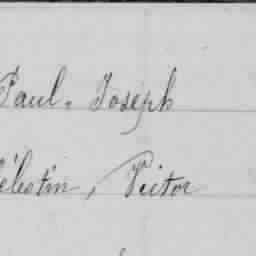 Paul, Joseph
élestin, Victor